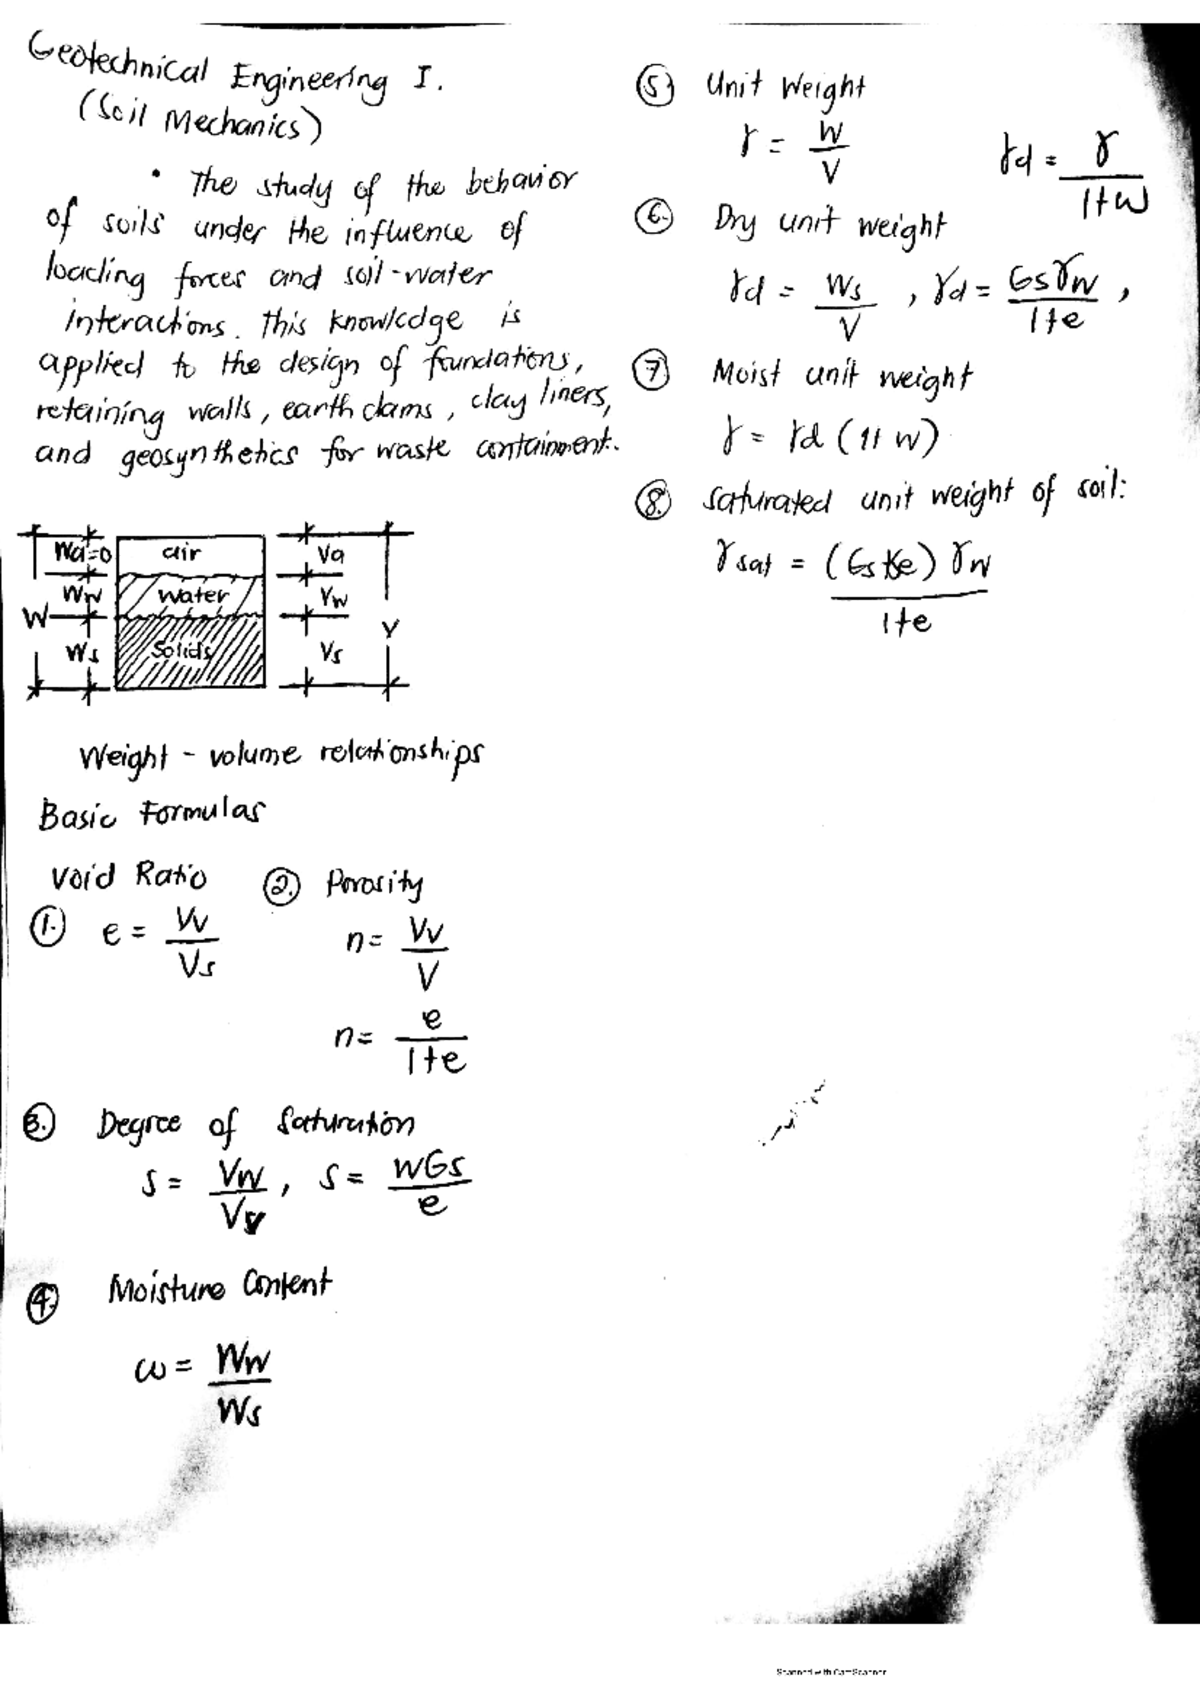 Geotechnical Engineering I.
(Soil Mechanics)
• The study of the behavior
of soils under the influence of
loading forces and soil-water
interactions. This knowledge is
applied to the design of foundations,
retaining walls, earth dams, clay liners,
and geosynthetics for waste containment.
Wa=0 air Va
Ww Water Vw
W V
Ws Solids Vs
Weight - volume relationships
Basic Formulas
Void Ratio
1. e = Vv / Vs
2. Porosity
n = Vv / V
n = e / 1+e
3. Degree of Saturation
S = Vw / Vv, S = WGs / e
4. Moisture Content
ω = Ww / Ws
5. Unit Weight
γ = W / V
γd = γ / 1+w
6. Dry unit weight
γd = Ws / V, γd = Gsγw / 1+e,
7. Moist unit weight
γ = γd (1+w)
8. Saturated unit weight of soil:
γsat = (Gs+e) γw / 1+e
Scanned with CamScanner